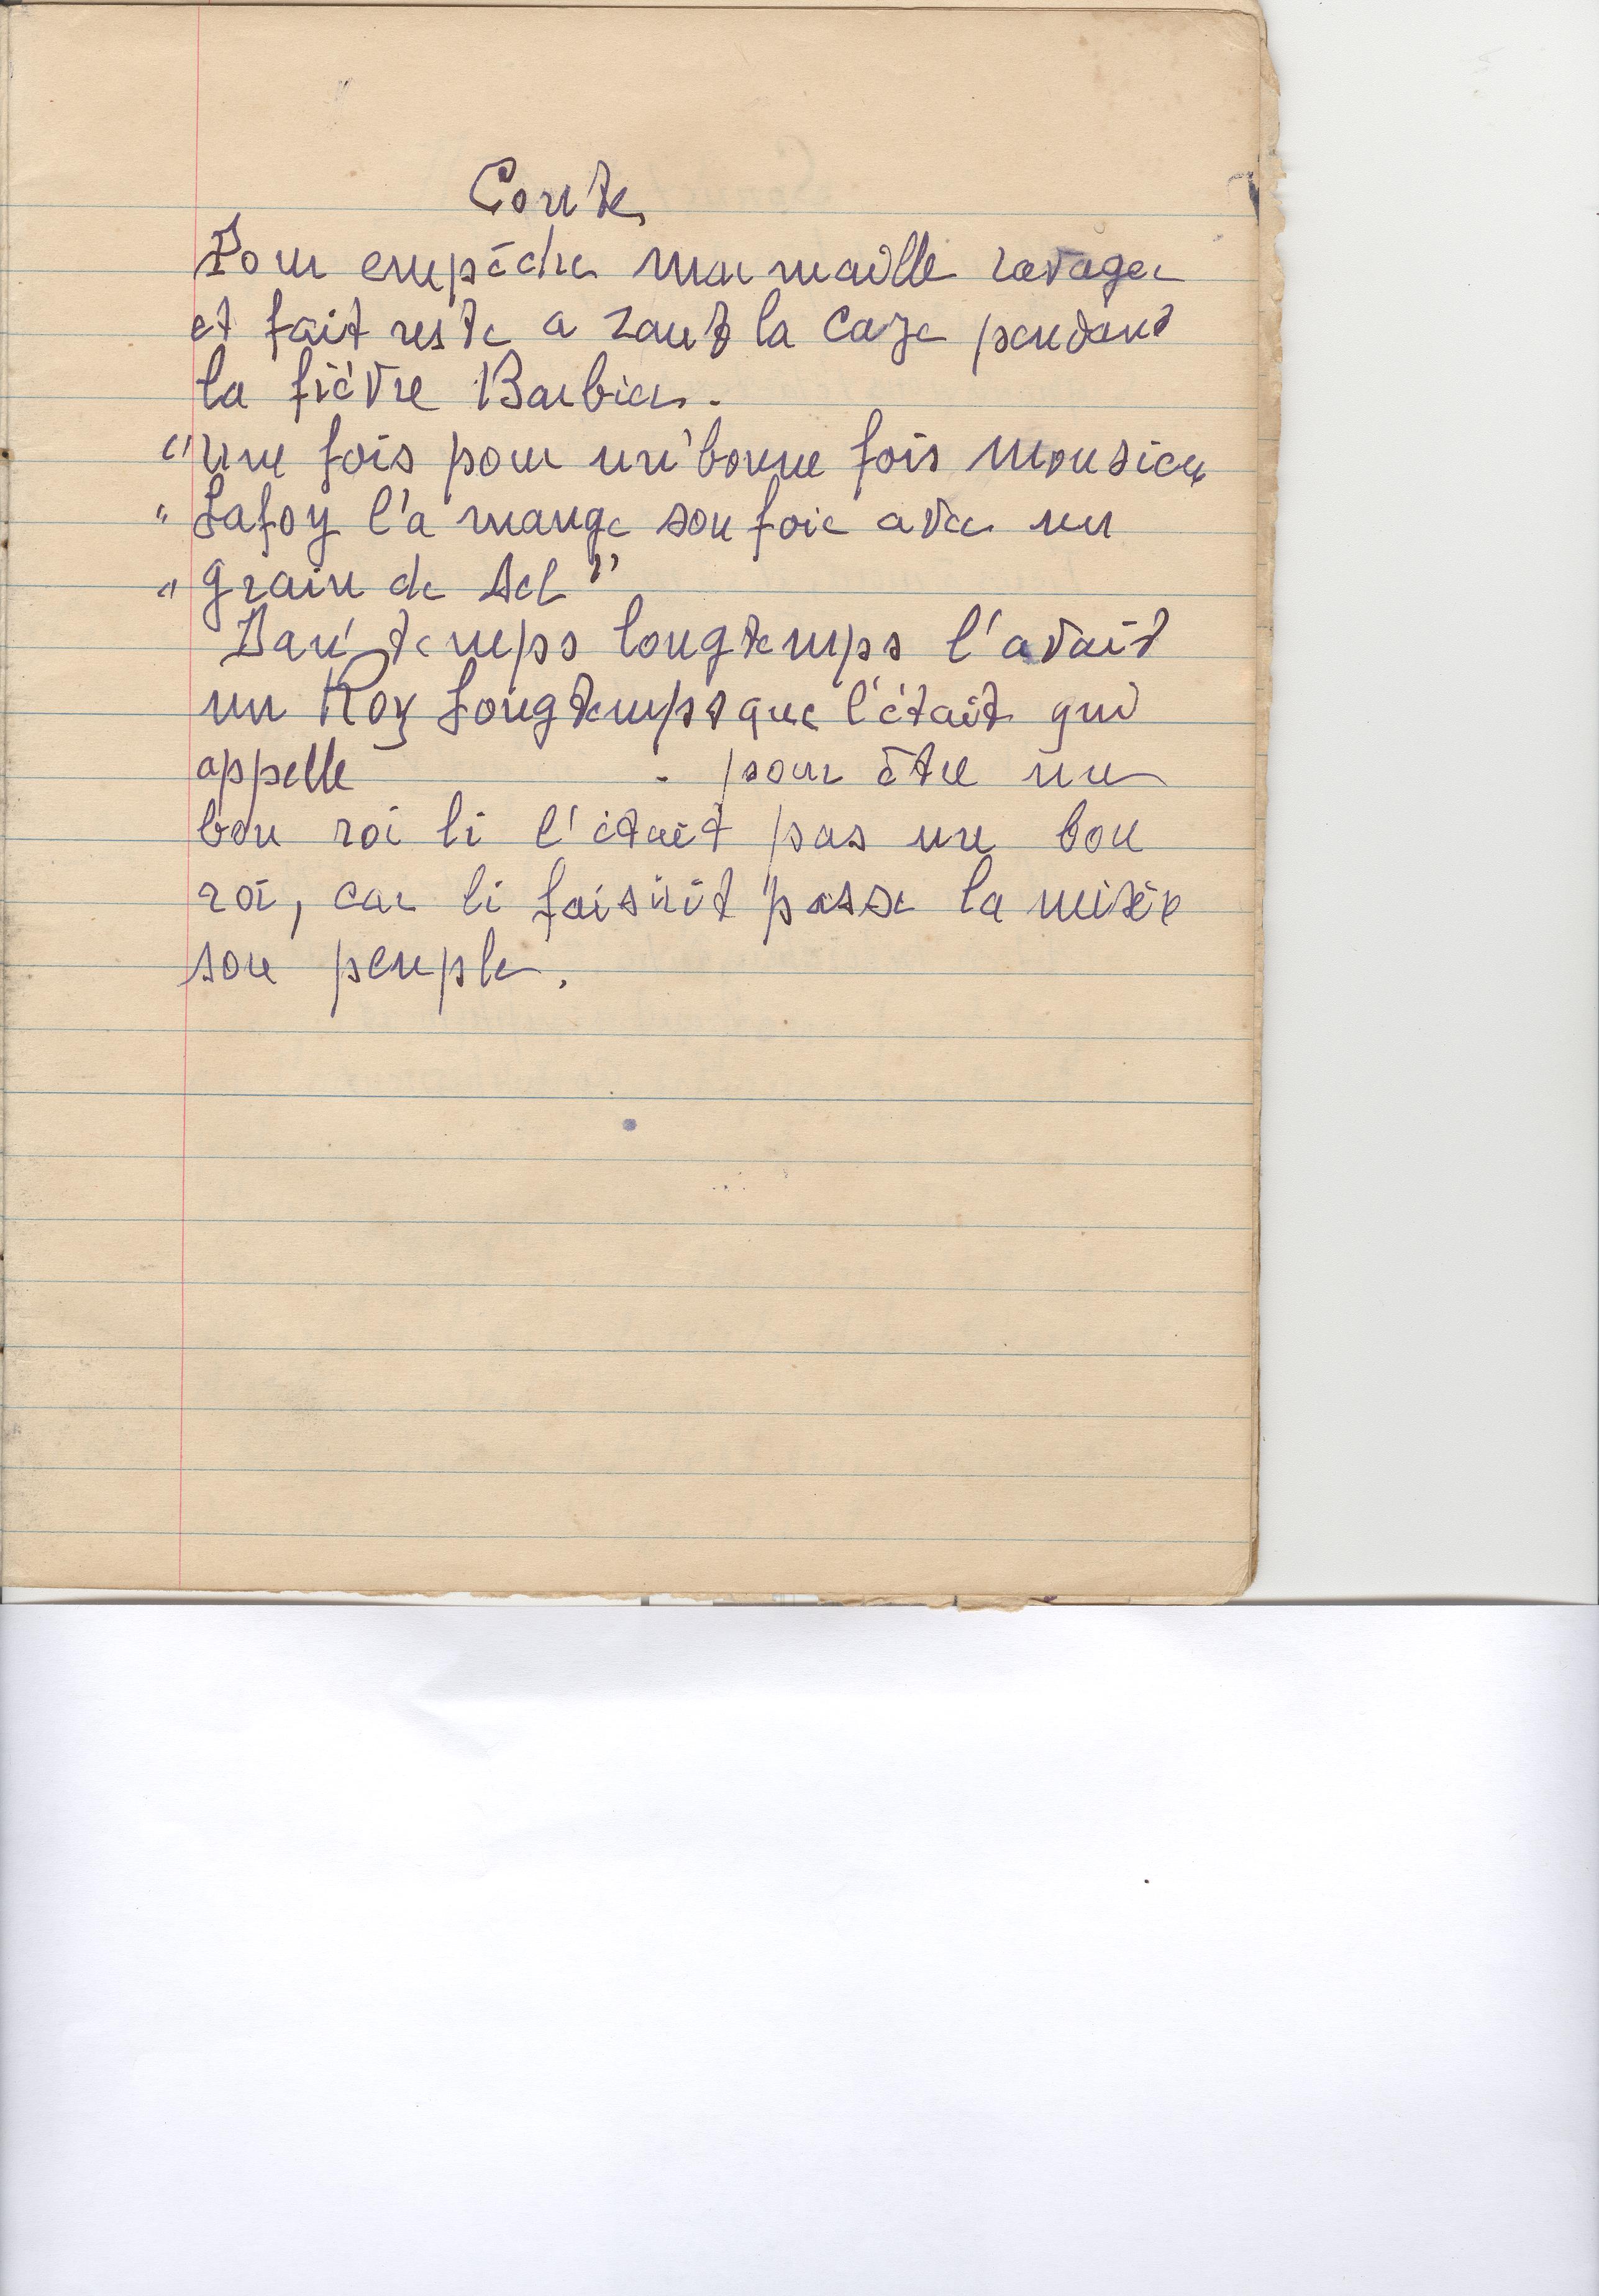 Conte
Pour empêcher marmaille ravager
et fait reste a zaut la caze pendant
la fièvre Barbier.
"Une fois pour un' bonne fois monsieur
" Lafoy l'a mange son foie avec un
" grain de sel"
Dan' temps longtemps l'avait
un Roy Longtemps que l'était qui
appelle . pour être un
bon roi li l'était pas un bon
roi, car li faisait passe la misère
son peuple.